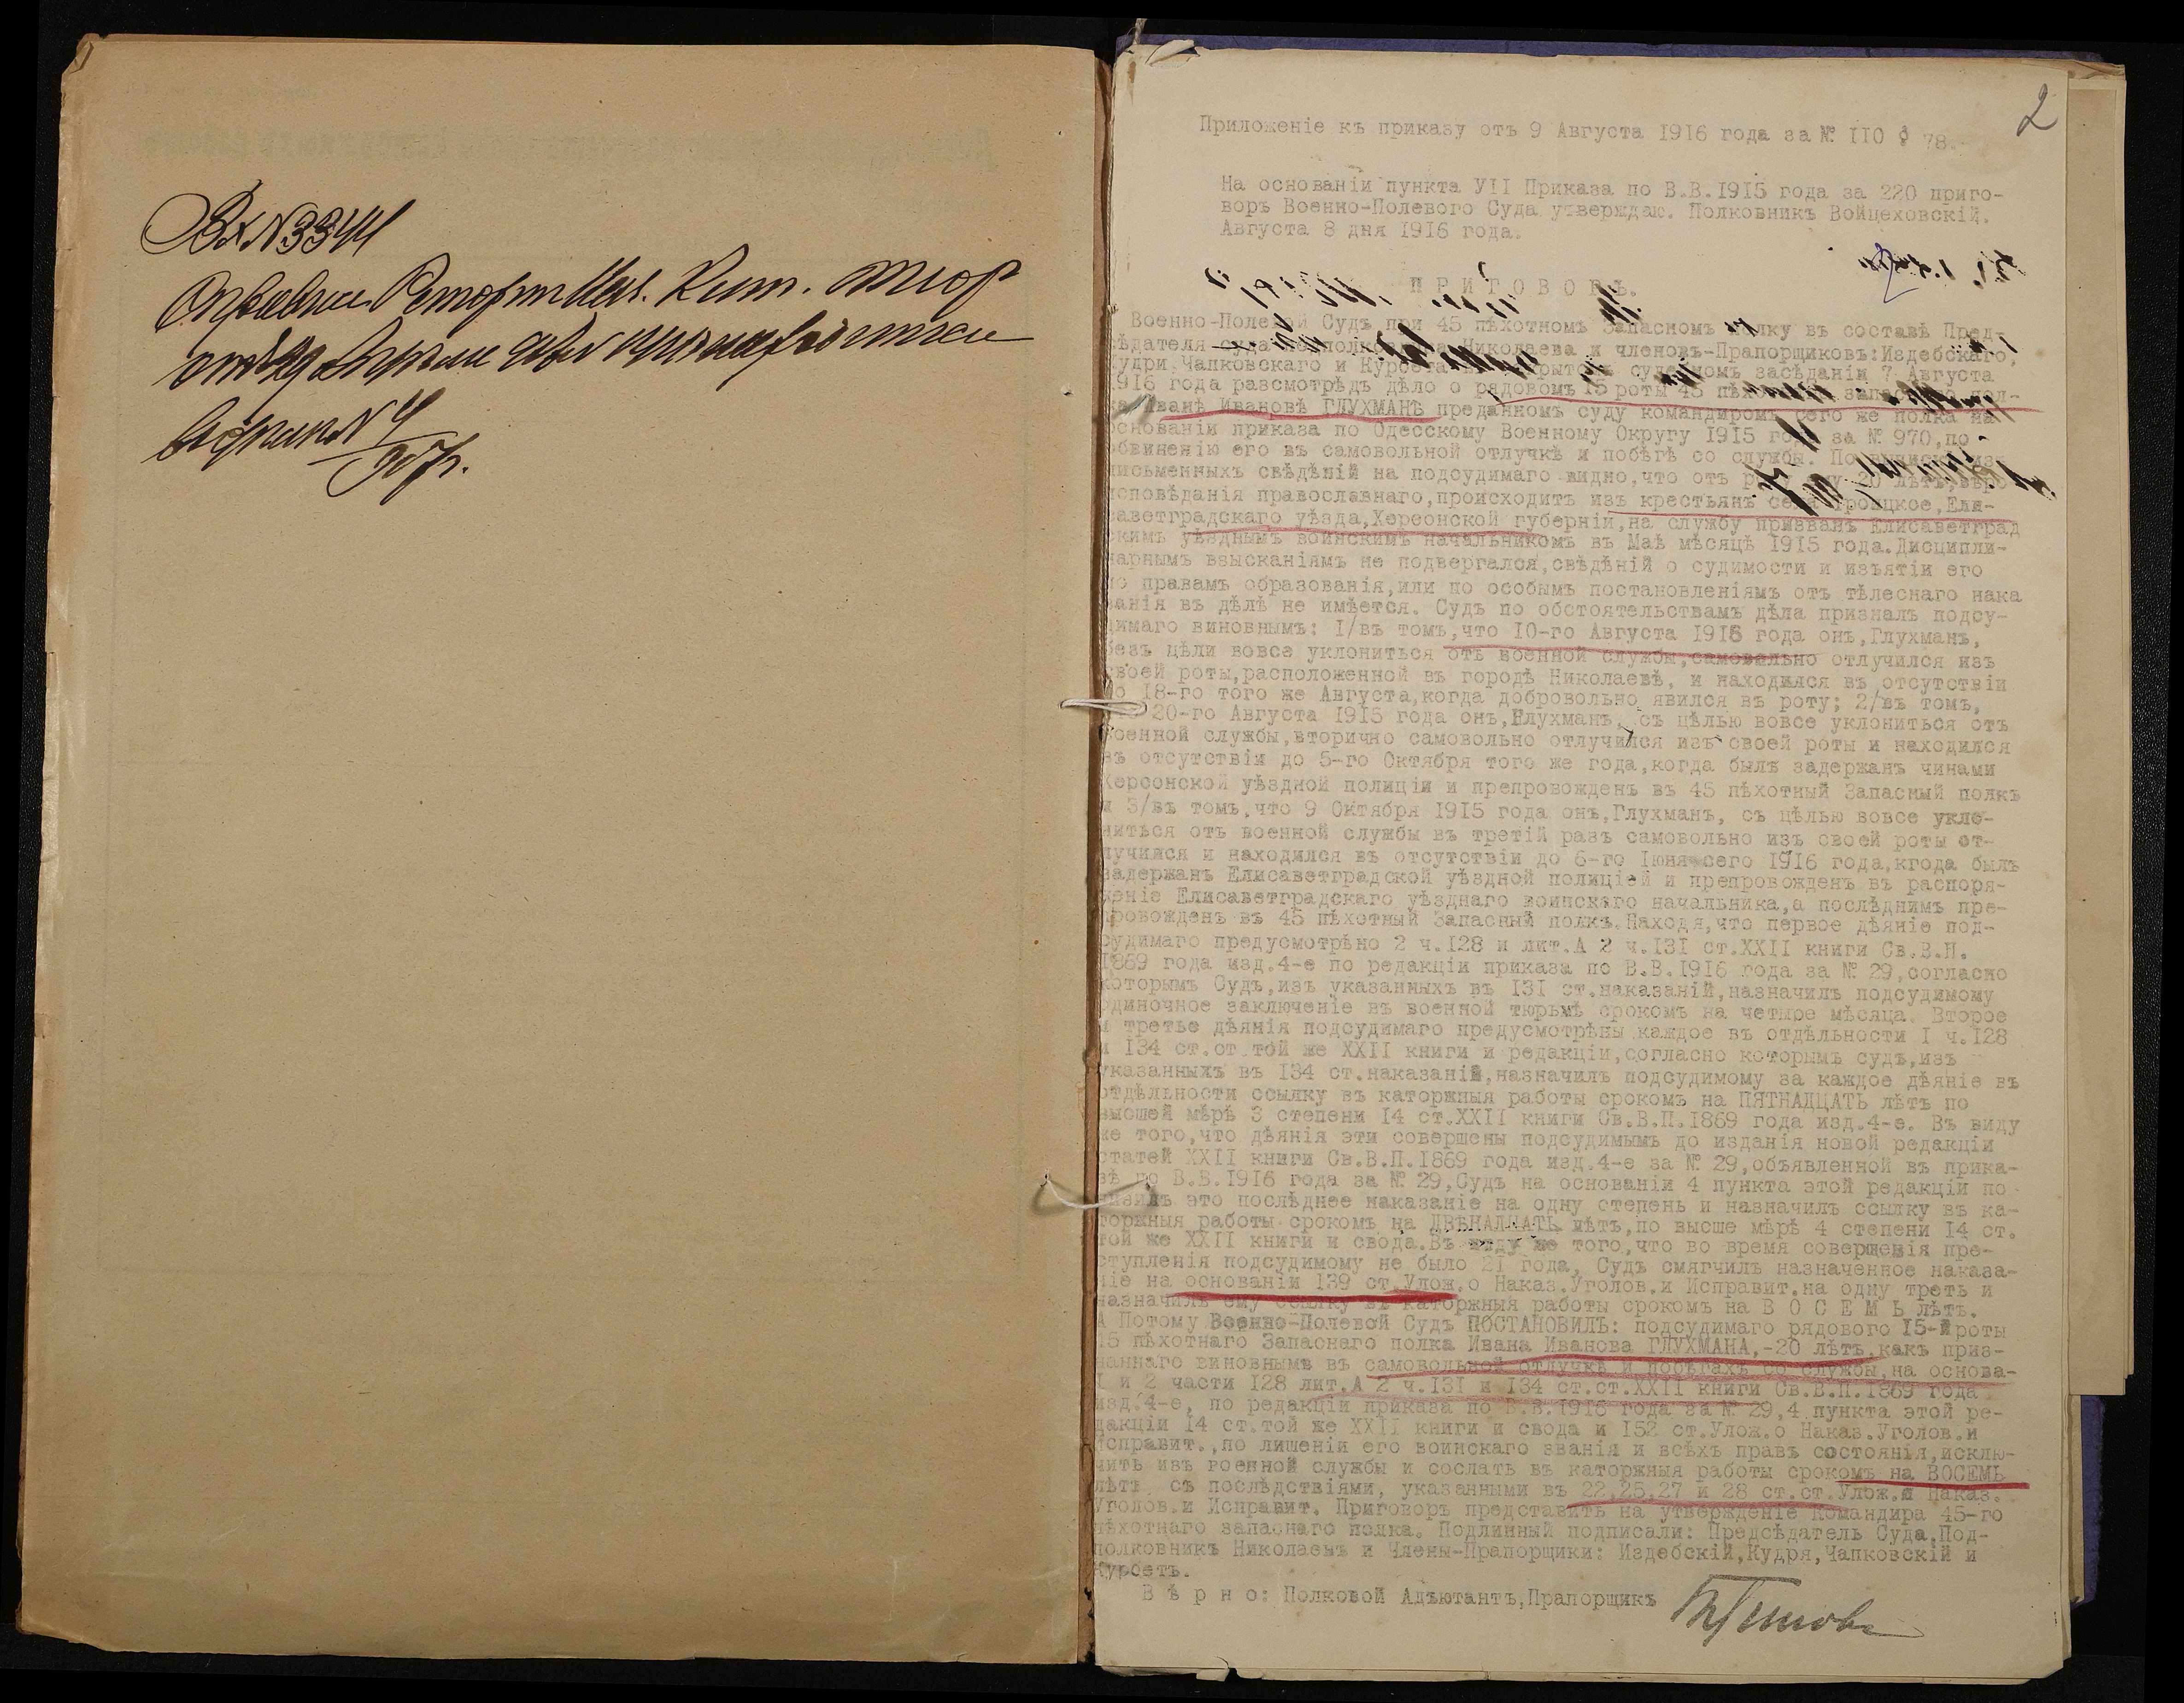 Вх N 3344
2
Приложеніе къ приказу отъ 9 Августа 1916 года за № 110 § 78.
На основаніи пункта УІІ Приказа по В.В.1915 года за 220 приго-
воръ Военно-Полевого Суда утверждаю. Полковникъ Войцеховскій.
Августа 8 дня 1916 года.
ПРИГОВОРЪ.
Военно-Полевой Судъ при 45 пѣхотномъ Запасномъ полку въ составѣ Пред-
сѣдателя суда Николаева и членовъ-Прапорщиковъ:Издебскаго,
Кудри,Чапковскаго и судебномъ засѣданіи 7 Августа
1916 года разсмотрѣдъ дѣло о рядовомъ 15 роты 45
Иванѣ Ивановѣ ГЛУХМАНЪ преданномъ суду командиромъ сего же полка на
основаніи приказа по Одесскому Военному Округу 1915 за № 970,по
обвиненію его въ самовольной отлучкѣ и побѣгѣ со службы.
письменныхъ свѣдѣній на подсудимаго видно,что отъ 20 лѣтъ,вѣро
исповѣданія православнаго,происходитъ изъ крестьянъ Троицкое,Ели-
саветградскаго уѣзда,Херсонской губерніи,на службу призванъ Елисаветград
скимъ уѣзднымъ воинскимъ начальникомъ въ Маѣ мѣсяцѣ 1915 года.Дисципли-
нарнымъ взысканіямъ не подвергался,свѣдѣній о судимости и изъятіи его
по правамъ образованія,или по особымъ постановленіямъ отъ тѣлеснаго нака
занія въ дѣлѣ не имѣется. Судъ по обстоятельствамъ дѣла призналъ подсу-
димаго виновнымъ: 1/въ томъ,что 10-го Августа 1915 года онъ,Глухманъ,
безъ цѣли вовсе уклониться отъ военной службы,самовольно отлучился изъ
своей роты,расположенной въ городѣ Николаевѣ, и находился въ отсутствіи
до 18-го того же Августа,когда добровольно явился въ роту; 2/въ томъ,
20-го Августа 1915 года онъ,Глухманъ, съ цѣлью вовсе уклониться отъ
военной службы,вторично самовольно отлучился изъ своей роты и находился
въ отсутствіи до 5-го Октября того же года,когда былъ задержанъ чинами
Херсонской уѣздной полиціи и препровожденъ въ 45 пѣхотный Запасный полкъ
и 3/въ томъ,что 9 Октября 1915 года онъ,Глухманъ, съ цѣлью вовсе укло-
ниться отъ военной службы въ третій разъ самовольно изъ своей роты от-
лучился и находился въ отсутствіи до 6-го Іюня сего 1916 года,кгода былъ
задержанъ Елисаветградской уѣздной полиціей и препровожденъ въ распоря-
женіе Елисаветградскаго уѣзднаго воинскаго начальника,а послѣднимъ пре-
провожденъ въ 45 пѣхотный Запасный полкъ.Находя,что первое дѣяніе под-
судимаго предусмотрѣно 2 ч.128 и лит.А 2 ч.131 ст.XXII книги Св.В.П.
1869 года изд.4-е по редакціи приказа по В.В.1916 года за № 29,согласно
которымъ Судъ,изъ указанныхъ въ 131 ст.наказаній,назначилъ подсудимому
одиночное заключеніе въ военной тюрьмѣ срокомъ на четыре мѣсяца. Второе
и третье дѣянія подсудимаго предусмотрѣны каждое въ отдѣльности I ч.128
и 134 ст.ст той же XXII книги и редакціи,согласно которымъ судъ,изъ
указанныхъ въ 134 ст.наказаній,назначилъ подсудимому за каждое дѣяніе въ
отдѣльности ссылку въ каторжныя работы срокомъ на ПЯТНАДЦАТЬ лѣтъ по
высшей мѣрѣ 3 степени 14 ст.XXII книги Св.В.П.1869 года изд.4-е. Въ виду
же того,что дѣянія эти совершены подсудимымъ до изданія новой редакціи
статей XXII книги Св.В.П.1869 года изд.4-е за № 29,объявленной въ прика-
зѣ по В.В.1916 года за № 29,Судъ на основаніи 4 пункта этой редакціи по
низилъ это послѣднее наказаніе на одну степень и назначилъ ссылку въ ка-
торжныя работы срокомъ на ДВѢНАДЦАТЬ лѣтъ,по высше мѣрѣ 4 степени 14 ст.
той же XXII книги и свода.Въ виду же того,что во время совершенія пре-
ступленія подсудимому не было 21 года, Судъ смягчилъ назначенное наказа-
ніе на основаніи 139 ст.Улож.о Наказ.Уголов.и Исправит.на одну треть и
назначилъ ему ссылку въ каторжныя работы срокомъ на В О С Е М Ь лѣтъ.
А Потому Военно-Полевой Судъ ПОСТАНОВИЛЪ: подсудимаго рядового 15-й роты
45 пѣхотнаго Запаснаго полка Ивана Иванова ГЛУХМАНА,-20 лѣтъ,какъ приз-
наннаго виновнымъ въ самовольной отлучкѣ и побѣгахъ со службы,на основа-
I и 2 части 128 лит.А 2 ч.131 и 134 ст.ст.XXII книги Св.В.П.1869 года
изд.4-е, по редакціи приказа по В.В.1916 года за № 29,4 пункта этой ре-
дакціи 14 ст.той же XXII книги и свода и 152 ст.Улож.о Наказ.Уголов.и
Исправит.,по лишеніи его воинскаго званія и всѣхъ правъ состоянія,исклю-
чить изъ военной службы и сослать въ каторжныя работы срокомъ на ВОСЕМЬ
лѣтъ съ послѣдствіями, указанными въ 22,25,27 и 28 ст.ст.Улож.о Наказ.
Уголов.и Исправит. Приговоръ представить на утвержденіе Командира 45-го
пѣхотнаго запаснаго полка. Подлинный подписали: Предсѣдатель Суда,Под-
полковникъ Николаевъ и Члены-Прапорщики: Издебскій,Кудря,Чапковскій и
Курсетъ.
В ѣ р н о: Полковой Адъютантъ,Прапорщикъ